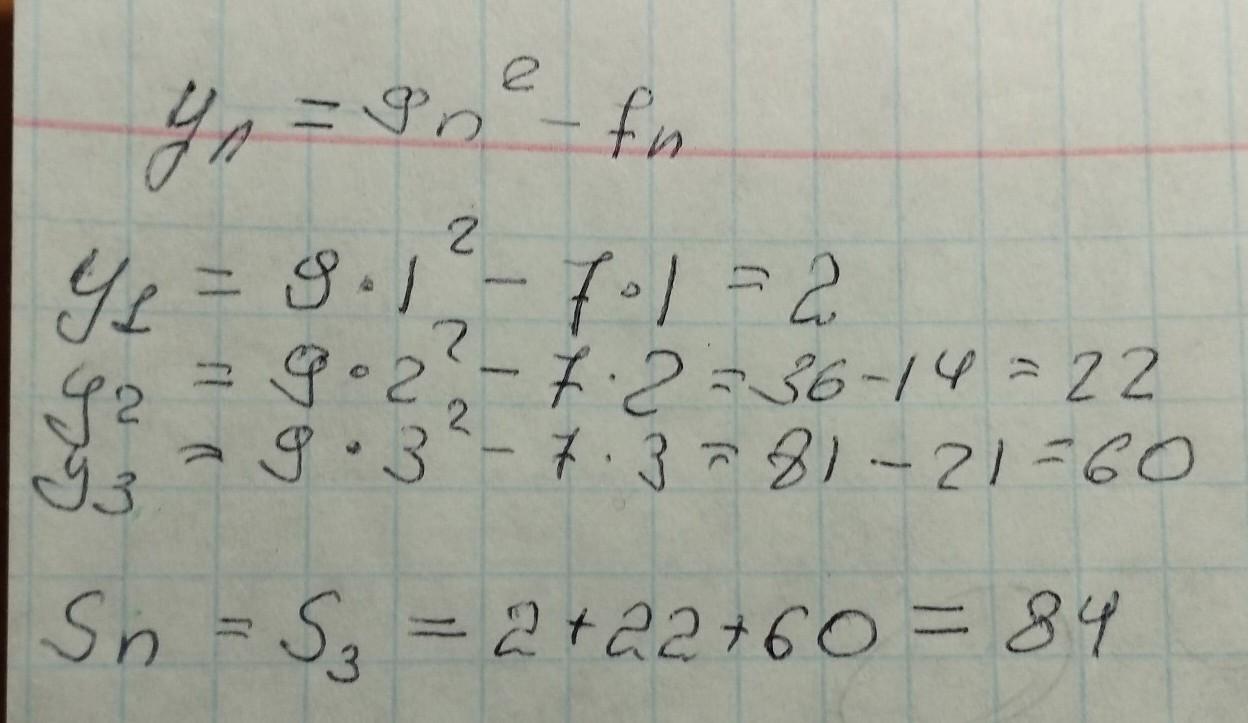 yₙ = 9n² - 7n
y₁ = 9·1² - 7·1 = 2
y₂ = 9·2² - 7·2 = 36-14 = 22
y₃ = 9·3² - 7·3 = 81 - 21 = 60
Sₙ = S₃ = 2+22+60 = 84